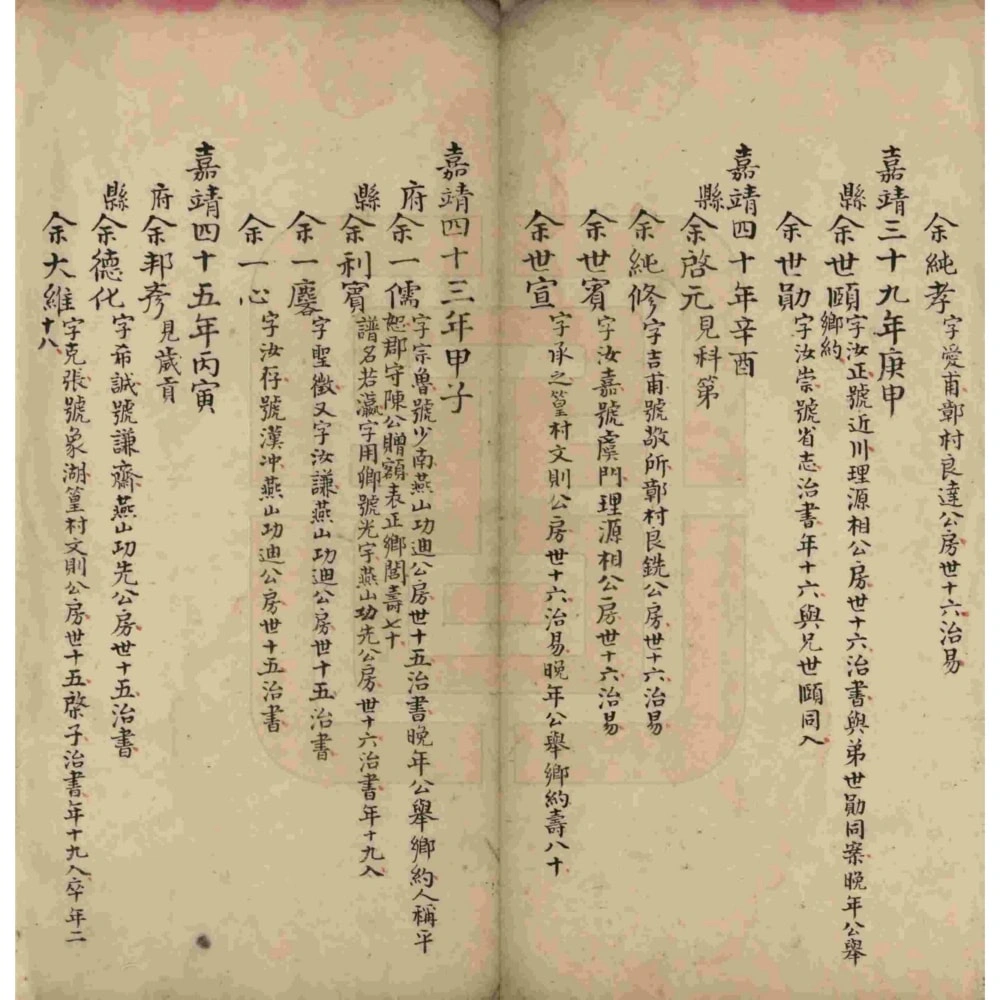 余純孝字愛甫鄣村良達公房世十六治易
嘉靖三十九年庚申
縣余世頤字汝正號近川理源相公房世十六治書與弟世勛同案晚年公舉
鄉約
余世勛字汝崇號省志治書年十六與兄世頤同入
嘉靖四十年辛酉
縣余啓元見科第
余純修字吉甫號敬所鄣村良銑公房世十六治易
余世賓字汝嘉號虞門理源相公房世十六治易
余世宣字承之篁村文則公房世十六治易晚年公舉鄉約壽八十
嘉靖四十三年甲子
府余一儒字宗魯號少南燕山功迪公房世十五治書晚年公舉鄉約人稱平
恕郡守陳公贈額表正鄉閭壽七十
縣余利賓譜名若瀛字用卿號光宇燕山功先公房世十六治書年十九入
余一麐字聖徵又字汝謙燕山功迪公房世十五治書
余一心字汝存號漢冲燕山功迪公房世十五治書
嘉靖四十五年丙寅
府余邦彥見歲貢
縣余德化字希誠號謙齋燕山功先公房世十五治書
余大維字克張號象湖篁村文則公房世十五棨子治書年十九入卒年二
十八